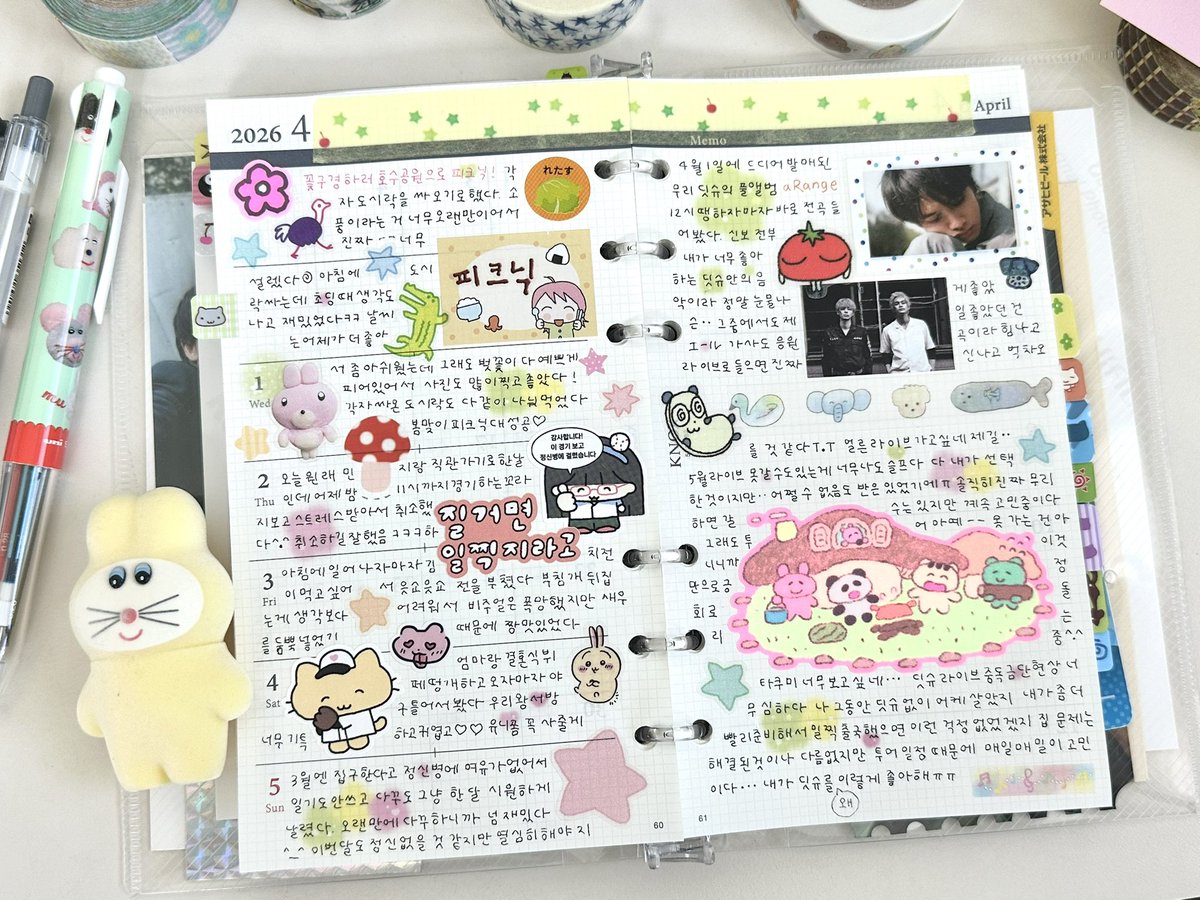 2026 4
꽃구경하러 호수공원으로 피크닉! 각
자 도시락을 싸오기로했다. 소
풍이라는 거 너무오랜만이어서
진짜 ~~ 너무
れたす
설렜다 아침에 도시
락싸는데 초딩때 생각도
나고 재밌었다ㅋㅋ 날씨
는어제가 더좋아
피크닉
1
Wed
서 좀 아쉬웠는데 그래도 벚꽃이 다 예쁘게
피어있어서 사진도 많이찍고좋았다!
각자싸온 도시락도 다같이 나눠먹었다
봄맞이 피크닉대성공♡
감사합니다!
이 경기 보고
정신병에 걸렸습니다
2
Thu
오늘원래 민지랑 직관가기로한날
인데어제 밤 11시까지경기하는꼬라
지보고스트레스받아서 취소했
다^.^ 취소하길잘했음 ㅋㅋㅋㅋ하
질거면
일찍지라고
3
Fri
아침에일어나자마자김치전
이먹고싶어서 읏쇼읏쇼 전을부쳤다 부침개뒤집
는게 생각보다 어려워서 비주얼은 폭망했지만 새우
를듬뿍넣었기 때문에 짱맛있었다
4
Sat
엄마랑 결혼식뷔
페떵개하고오자마자야
구틀어서봤다 우리왕서방
너무기특하고귀엽고♡♡ 유니폼 꼭 사줄게
5
Sun
3월엔 집구한다고 정신병에 여유가없어서
일기도안쓰고 다꾸도 그냥 한달 시원하게
날렸다. 오랜만에 다꾸하니까 넘재밌다
^_^ 이번달도정신없을 것 같지만 열심히해야지
60
April
Memo
4월1일에 드디어발매된
우리 딧슈의 풀앨범 aRange
12시 땡하자마자 바로 전곡 들
어봤다. 신보 전부
내가 너무좋아
하는 딧슈안의 음
악이라 정말 눈물나
는.. 그중에서도제게좋았
エール 가사도 응원곡이라힘나고
라이브로들으면진짜 신나고 벅차오
를 것 같다T.T 얼른라이브가고싶네 제길..
5월라이브 못갈수도있는게 너무나도슬프다 다 내가 선택
한것이지만.. 어쩔 수 없음도 반은있었기에ㅠ 솔직히진짜 무리
하면 갈수는있지만 계속 고민중이다
그래도 투어 아예 ~~ 못 가는 건 아
니니까 이것
만으로 긍정
회로 돌
리는
중^^
타쿠미너무보고싶네... 딧슈라이브중독금단현상 너
무심하다 나 그동안 딧슈없이 어케살았지 내가좀더
빨리준비해서일찍출국했으면 이런 걱정없었겠지 집문제는
해결된것이나 다름없지만 투어일정 때문에 매일매일이고민
이다... 내가 딧슈를이렇게 좋아해ㅠㅠ
왜
61
アサヒビール株式会社